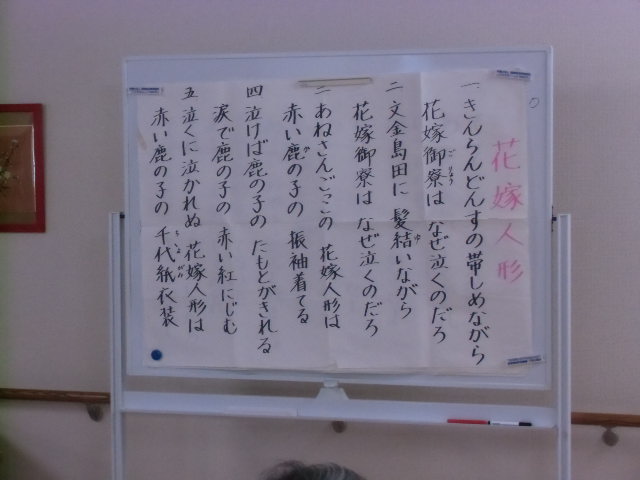 花嫁人形
一 きんらんどんすの帯しめながら
花嫁御寮は なぜ泣くのだろ
二 文金島田に 髪結いながら
花嫁御寮は なぜ泣くのだろ
三 あねさんごっこの 花嫁人形は
赤い鹿の子の 振袖着てる
四 泣けば鹿の子の たもとがきれる
涙で鹿の子の 赤い紅にじむ
五 泣くに泣かれぬ 花嫁人形は
赤い鹿の子の 千代紙衣装